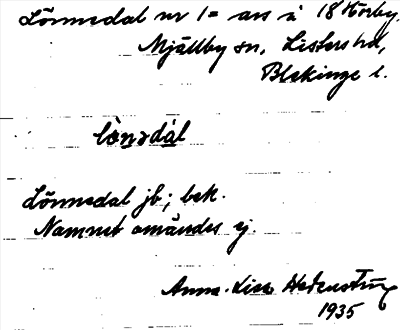 Lönnedal nr 1 = avs å 18 Hörby,
Mjällby sn, Listers hd,
Blekinge l.
lònədál
Lönnedal jb; bek.
Namnet användes ej.
Anna-Lisa
1935